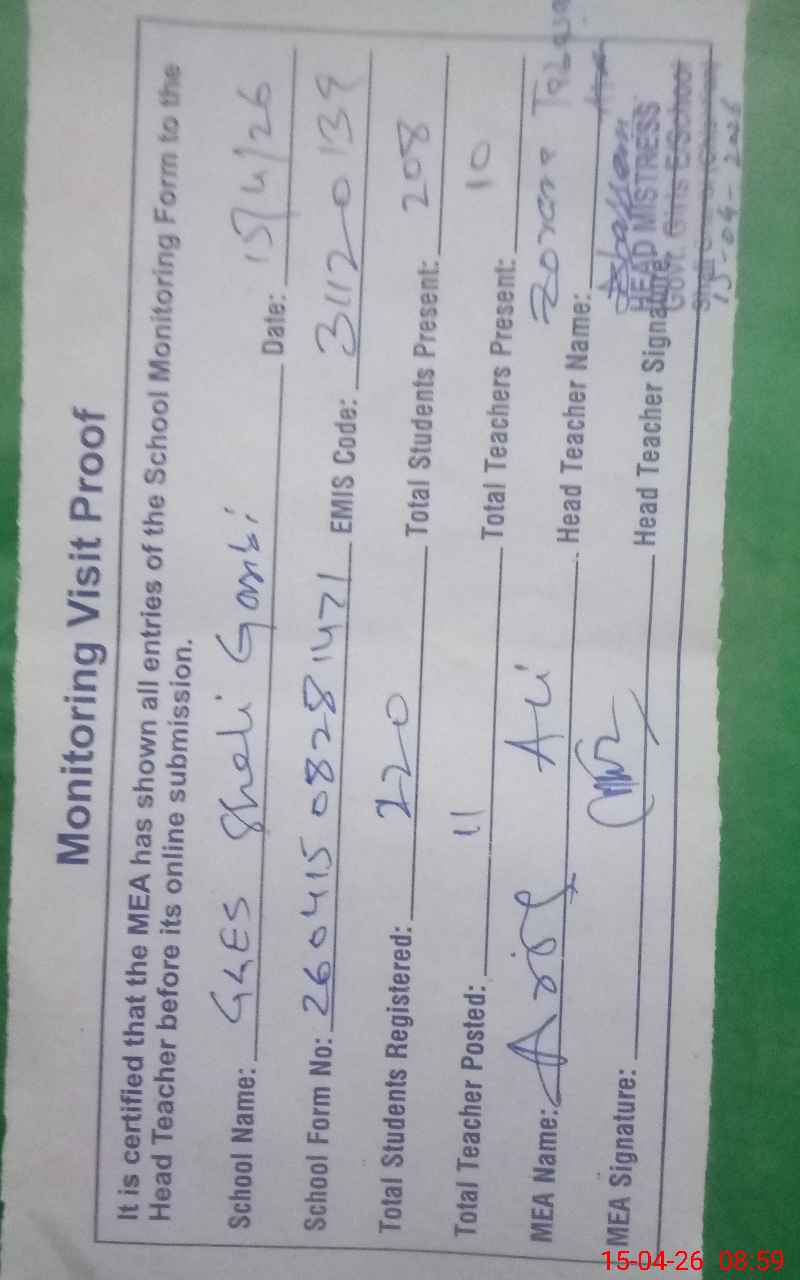 Monitoring Visit Proof
It is certified that the MEA has shown all entries of the School Monitoring Form to the
Head Teacher before its online submission.
School Name: GGES Sheli Garbi Date: 15/4/26
School Form No: 260415 08281471 EMIS Code: 31120139
Total Students Registered: 220 Total Students Present: 208
Total Teacher Posted: 11 Total Teachers Present: 10
MEA Name: Arif Ali Head Teacher Name:
MEA Signature: Head Teacher Signature:
HEAD MISTRESS
Govt. Girls E/School
15-04-2026
15-04-26 08:59